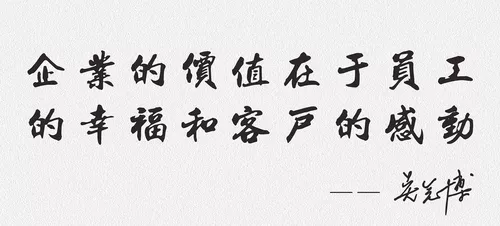 企業的價值在于員工
的幸福和客戶的感動
——吳光博